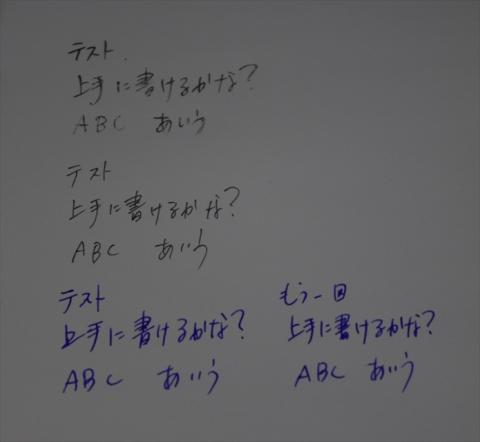 テスト.
上手に書けるかな?
ABC あいう
テスト
上手に書けるかな?
ABC あいう
テスト
上手に書けるかな?
ABC あいう
もう一回
上手に書けるかな?
ABC あいう